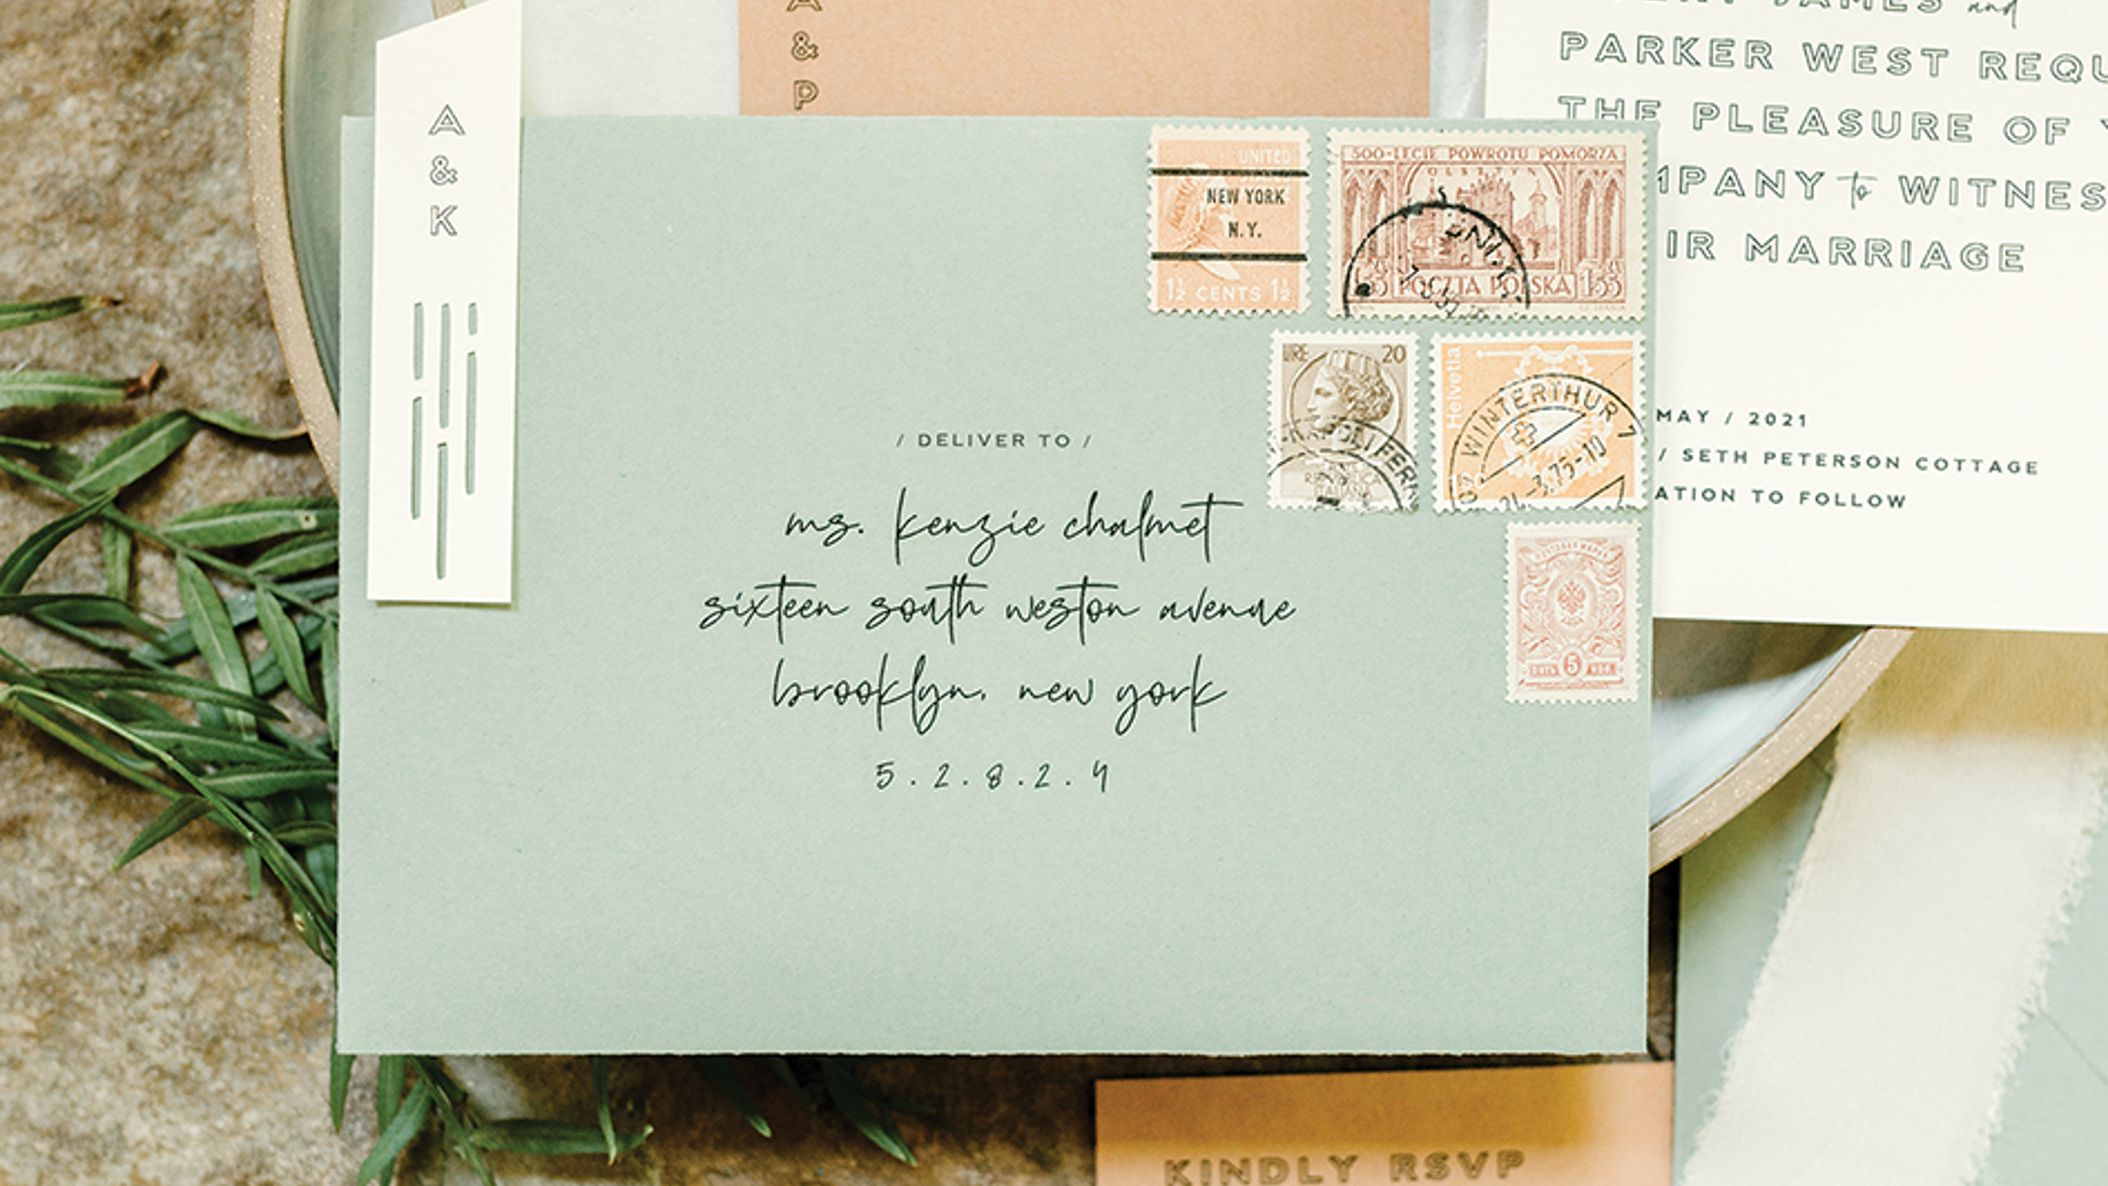 A
&
K
A
&
P
JAMES and
PARKER WEST REQU
THE PLEASURE OF
MPANY to WITNES
IR MARRIAGE
MAY / 2021
/ SETH PETERSON COTTAGE
ATION TO FOLLOW
UNITED
NEW YORK
N.Y.
1½ CENTS 1½
500-LECIE POWROTU POMORZA
OLSZTYN
155 POCZTA POLSKA 155
LIRE 20
NAPOLI FERR
Helvetia
WINTERTHUR 7
21-3.75-10
ПОЧТОВАЯ МАРКА
ПЯТЬ 5 КОП.
/ DELIVER TO /
ms. kenzie chalmet
sixteen south weston avenue
brooklyn, new york
5.2.8.2.4
KINDLY RSVP